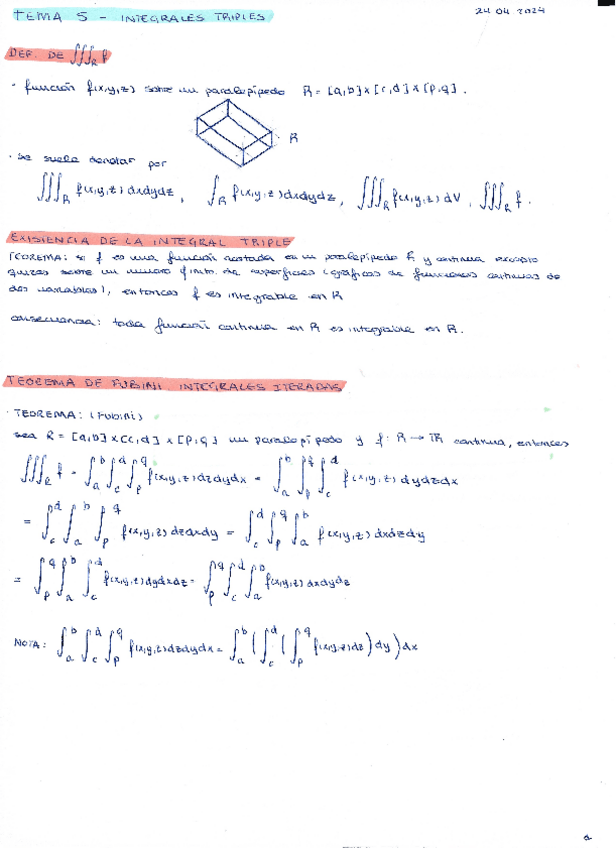 TEMA 5 - INTEGRALES TRIPLES
24 04 2024
DEF. DE ∭_R f
· función f(x,y,z) sobre un paralepípedo R = [a,b]×[c,d]×[p,q].
R
· se suele denotar por
∭_R f(x,y,z) dxdydz, ∫_R f(x,y,z) dxdydz, ∭_R f(x,y,z) dV, ∭_R f.
EXISTENCIA DE LA INTEGRAL TRIPLE
TEOREMA: si f es una función acotada en un paralepípedo R y continua excepto
quizás sobre un número finito de superficies (gráficas de funciones continuas de
dos variables), entonces f es integrable en R
consecuencia: toda función continua en R es integrable en R.
TEOREMA DE FUBINI INTEGRALES ITERADAS
· TEOREMA: (FUBINI)
sea R = [a,b]×[c,d]×[p,q] un paralepípedo y f: R → ℝ continua, entonces
∭_R f = ∫_a^b ∫_c^d ∫_p^q f(x,y,z) dzdydx = ∫_a^b ∫_p^q ∫_c^d f(x,y,z) dydzdx
= ∫_c^d ∫_a^b ∫_p^q f(x,y,z) dzdxdy = ∫_c^d ∫_p^q ∫_a^b f(x,y,z) dxdzdy
= ∫_p^q ∫_a^b ∫_c^d f(x,y,z) dydxdz = ∫_p^q ∫_c^d ∫_a^b f(x,y,z) dxdydz
NOTA: ∫_a^b ∫_c^d ∫_p^q f(x,y,z) dzdydx = ∫_a^b (∫_c^d (∫_p^q f(x,y,z) dz) dy) dx